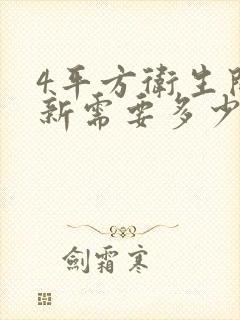 4平方衛生間
新需要多少
劍霜寒